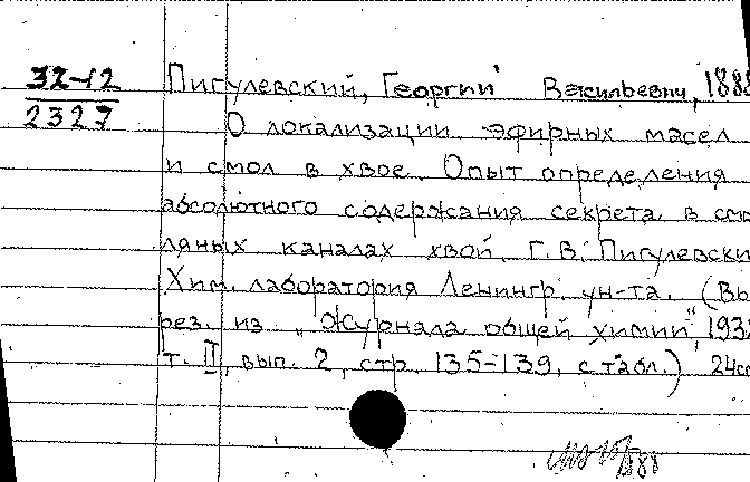 32-12
2327
Пигулевский, Георгий Васильевич, 1888
О локализации эфирных масел
и смол в хвое. Опыт определения
абсолютного содержания секрета в смо
ляных каналах хвои. Г.В. Пигулевски
Хим. лаборатория Ленингр. ун-та. (Вы
рез. из „Журнала общей химии", 193
т. II, вып. 2, стр. 135-139, с табл.) 24с